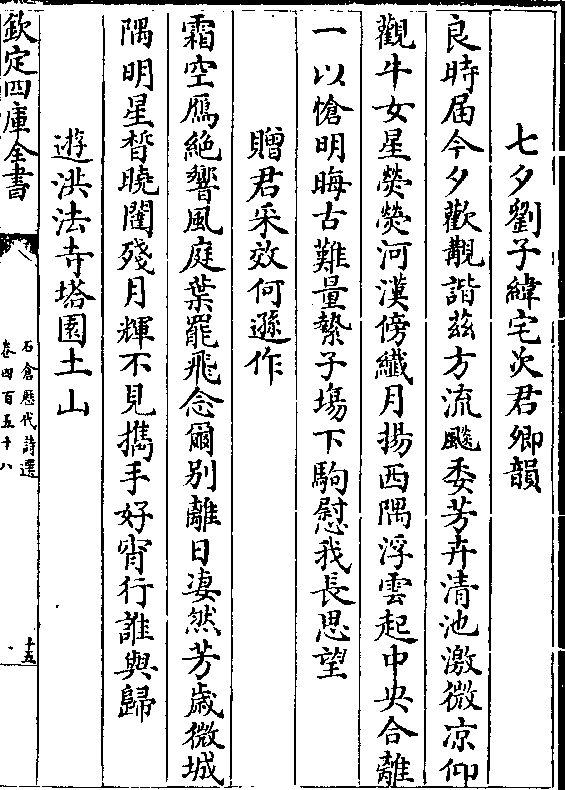 七夕劉子緯宅次君卿韻
良時届今夕歡覯諧茲方流飈委芳卉清池激微凉仰
觀牛女星熒熒河漢傍纖月揚西隅浮雲起中央合離
一以愴明晦古難量縶子塲下駒慰我長思望
贈君采效何遜作
霜空鴈絶響風庭葉罷飛念爾别離日凄然芳歲微城
隅明星晢曉闥殘月輝不見攜手好宵行誰與歸
遊洪法寺塔園土山
欽定四庫全書
石倉歷代詩選
卷四百五十八
十五